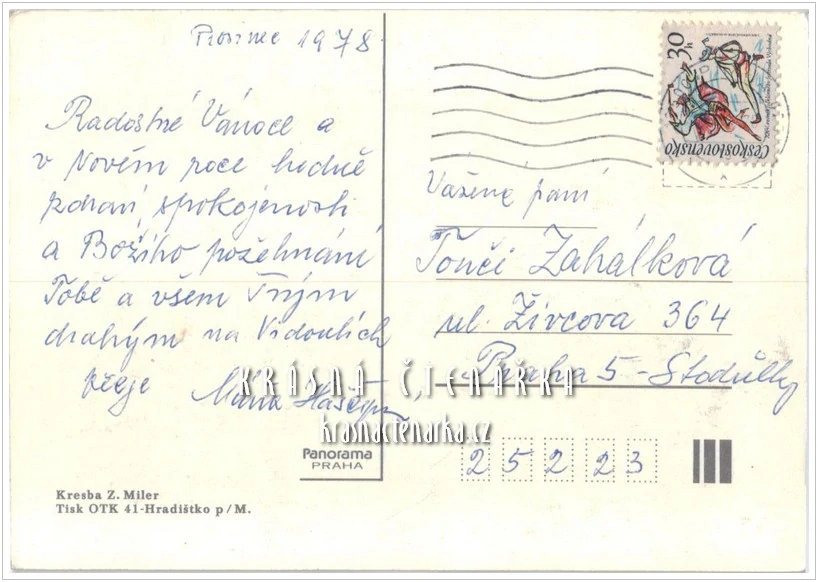 Prosinec 1978
Radostné Vánoce a
v Novém roce hodně
zdraví, spokojenosti
a Božího požehnání
Tobě a všem Tvým
drahým na Vidoulích
přeje
Vážená paní
Tonči Zahálková
ul. Živcova 364
Praha 5 - Stodůlky
25223
30h
Československo
KRÁSNÁ ČTENÁŘKA
krasnactenarka.cz
Panorama
PRAHA
Kresba Z. Miler
Tisk OTK 41-Hradištko p/M.